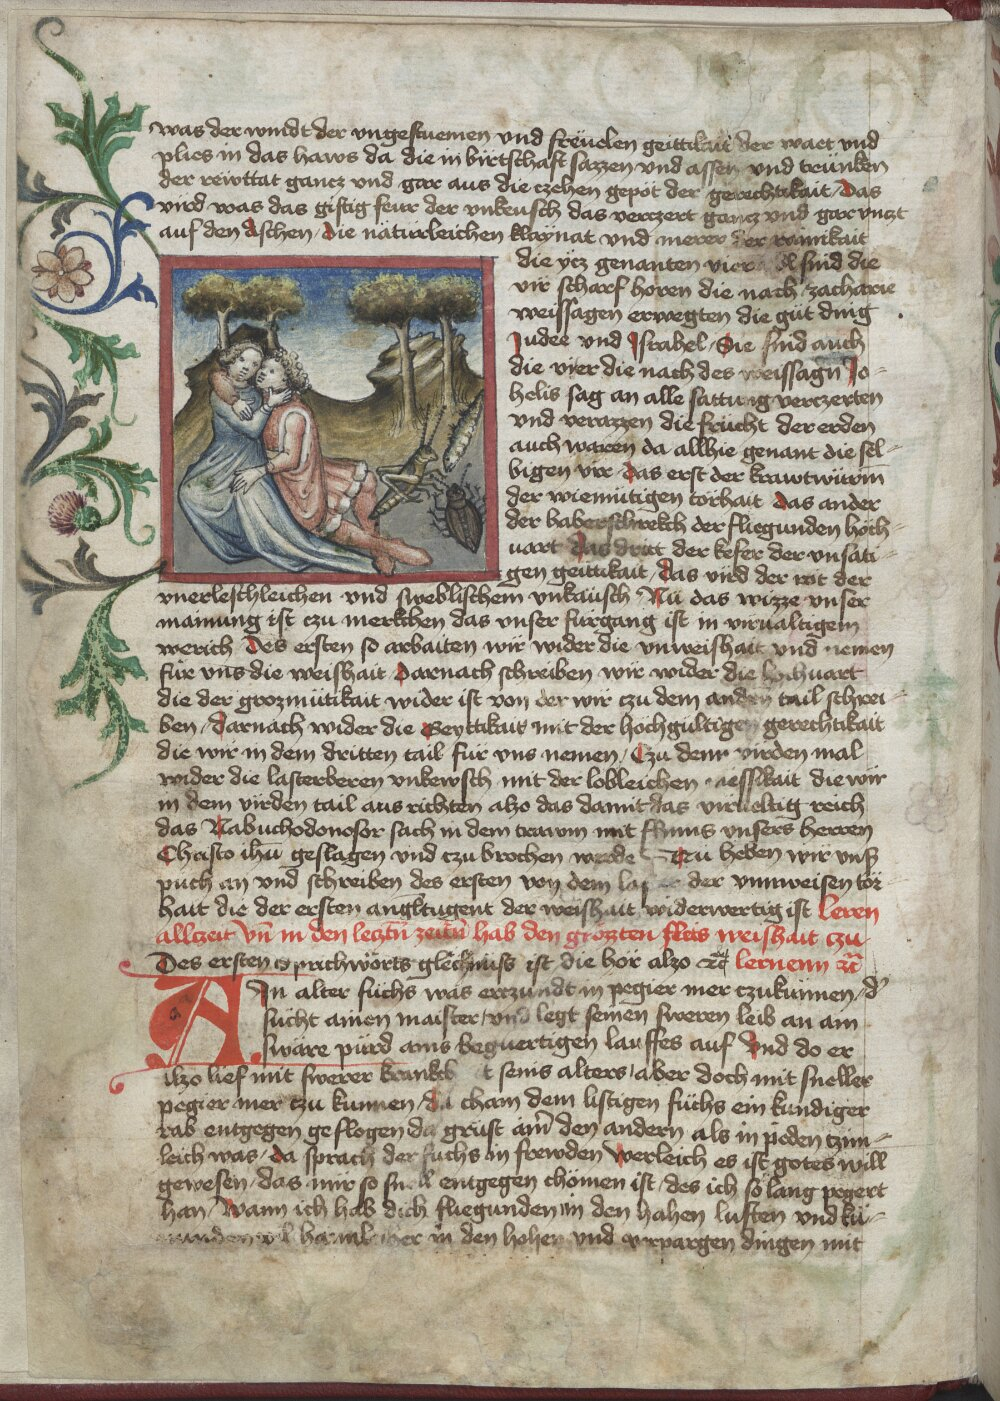 was der windt der vngestuemen vnd freuelen geittikait der waet vnd
plies in das haws da die in birtschaft sazzen vnd assen vnd trunken
der rewttat gancz vnd gar aus die czehen gepot der gerechtikait Das
vird was das giftig feur der vnkeusch das verczert gancz vnd gar vnczt
auf den Aschen die naturleichen klaynat vnd merer der rainikait
die ycz genanten vier sind die
vir scharf horen die nach zacharie
weissagen erwegten die gut ding
Judee vnd Israhel Sie sind auch
die vier die nach des weissagn Jo-
helis sag an alle sattung verczerten
vnd verazzen die frucht der erden
auch waren da allhie genant die sel-
bigen vir Das erst der krawtwurm
der wiemutigen torhait Das ander
der haberschrekch der fliegunden hoch-
uart Das dritt der kefer der vnsati-
gen geittikait Das vird der rot der
vnerleschleichen vnd sweblischem vnkausch Nu das wizze vnser
mainung ist czu merkchen das vnser furgang ist in virualtigem
werich Des ersten so arbaiten wir wider die vnweishait vnd nemen
fur vns die weishait Darnach schreiben wir wider die hochuart
die der grozmutikait wider ist von der wir czu dem andern tail schrei-
ben Darnach wider die Geytikait mit der hochgultigen gerechtikait
die wir in dem dritten tail fur vns nemen Czu dem virden mal
wider die lasterberen vnkewsch mit der lobleichen messikait die wir
in dem virden tail aus richten alzo das damit das virueltig reich
das Nabuchodonosor sach in dem trawm mit vnsers herren
Christo ihu geslagen vnd czu brochen werde Nu heben wir vnser
puch an vnd schreiben des ersten von dem der vnweisen tor
hait die der ersten angltugent der weishait widerwertig ist Leren
allczeit vn in den leczten zeiten hab den grozten fleis weishait czu
Des ersten sprichworts gleichnuss ist die vor alzo etc lernenn etc
AIn alter fuchs was erczundt in pegier mer czu kunnen d
sucht ainen maister vnd legt seinen sweren leib an am
sware purd ains beguertigen lauffes auf Vnd do er
alzo lief mit swerer seins alters aber doch mit sneller
pegier mer czu kunnen da cham dem listigen fuchs ein kundiger
rab entgegen geflogen da grust aim den andern als in peden czim-
leich was Da sprach der fuchs in frewden Werleich es ist gotes will
gewesen das mir so snell entgegen chomen ist des ich so lang pegert
han Wann ich hab dich fliegunden in den hahen luften vnd ku-
in den hohen vnd verpargen dingen mit